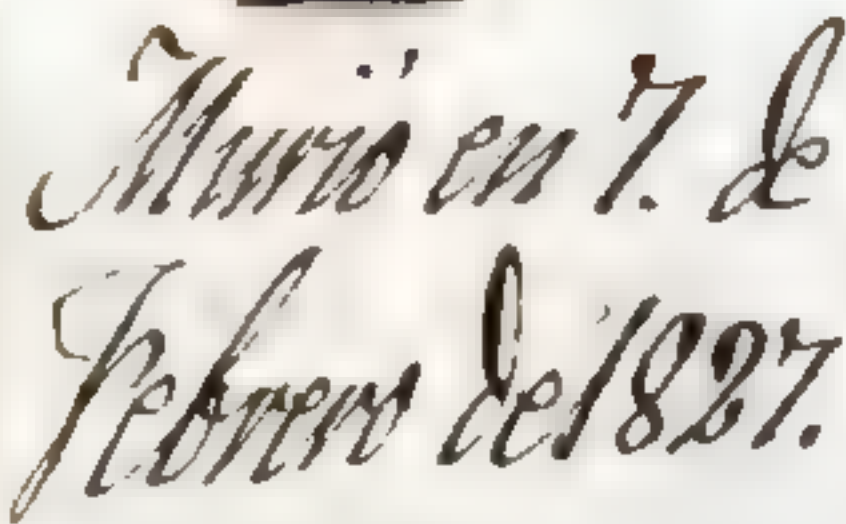 Murió en 7. de
Febrero de 1827.